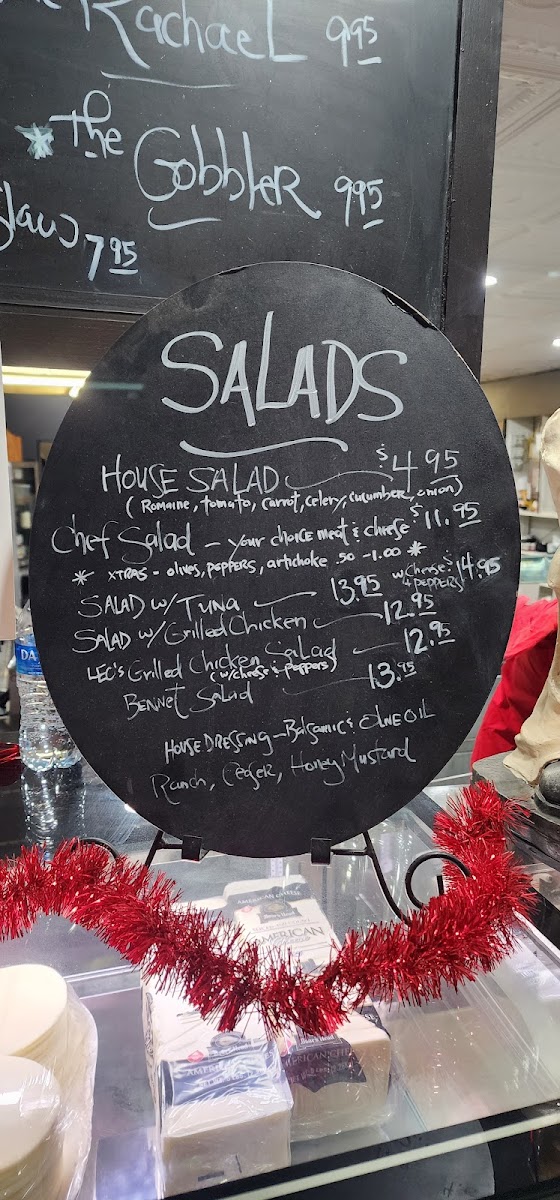 Rachael 9.95
* the Gobbler 9.95
slaw 7.95
SALADS
HOUSE SALAD $4.95
(Romaine, tomato, carrot, celery, cucumber, onion)
Chef Salad - your choice meat & cheese $11.95
* XTRAS - olives, peppers, artichoke .50 - 1.00 *
SALAD W/ TUNA 13.95 w/ cheese & peppers $14.95
SALAD W/ Grilled Chicken 12.95
LEO'S Grilled Chicken Salad 12.95
(w/ cheese & peppers)
Bennet Salad 13.95
HOUSE DRESSING - Balsamic & Olive OIL
Ranch, Ceaser, Honey Mustard
DA
AMERICAN